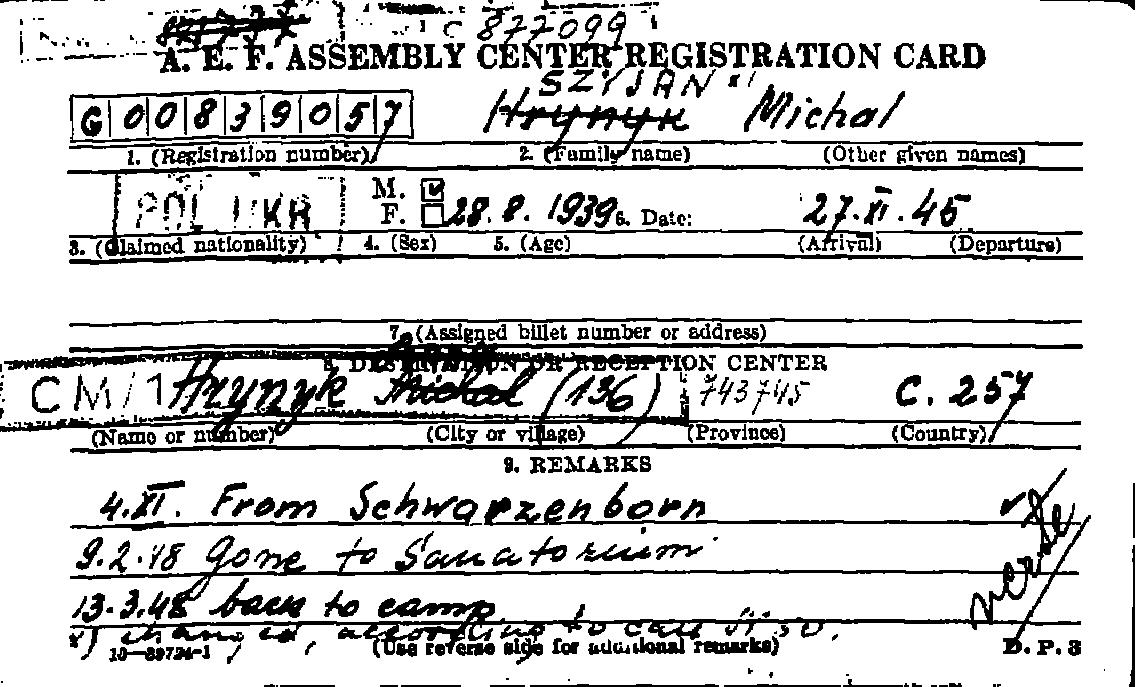 C 877099
A. E. F. ASSEMBLY CENTER REGISTRATION CARD
SZYJAN x)
G 00839057 Hrynyk Michal
1. (Registration number) 2. (Family name) (Other given names)
POL UKR M. F. 28. 8. 1939 6. Date: 27.XI.45
3. (Claimed nationality) 4. (Sex) 5. (Age) (Arrival) (Departure)
7. (Assigned billet number or address)
8. DESTINATION OR RECEPTION CENTER
CM/1 Hrynyk Michal (136) 743745 C. 257
(Name or number) (City or village) (Province) (Country)
9. REMARKS
4.XI. From Schwarzenborn
9.2.48 gone to Sanatorium
13.3.48 back to camp
x) changed, according to
10—89734-1 (Use reverse side for additional remarks) D. P. 3